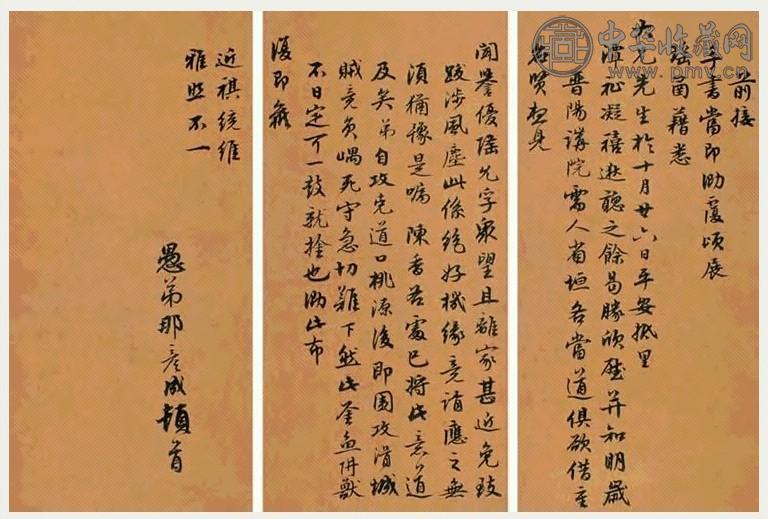 中华收藏网
www.pmv.cn
前接
手書當即泐覆頃展
瑤函藉悉
兄先生於十月廿六日平安抵里
潭祉凝禧逖聽之餘曷勝欣慰并知明歲
晉陽講院需人省垣各當道俱欲借重
名賢想見
聞譽優隆允孚衆望且離家甚近免致
跋涉風塵此係絕好機緣竟請應之無
須猶豫是囑 陳香岩處已將此意道
及矣弟自攻克道口桃源後即圍攻滑城
賊竟負嵎死守急切難下然此釜魚阱獸
不日定可一鼓就擒也泐此布
復即頌
近祺統維
雅照不一
愚弟那彥成頓首